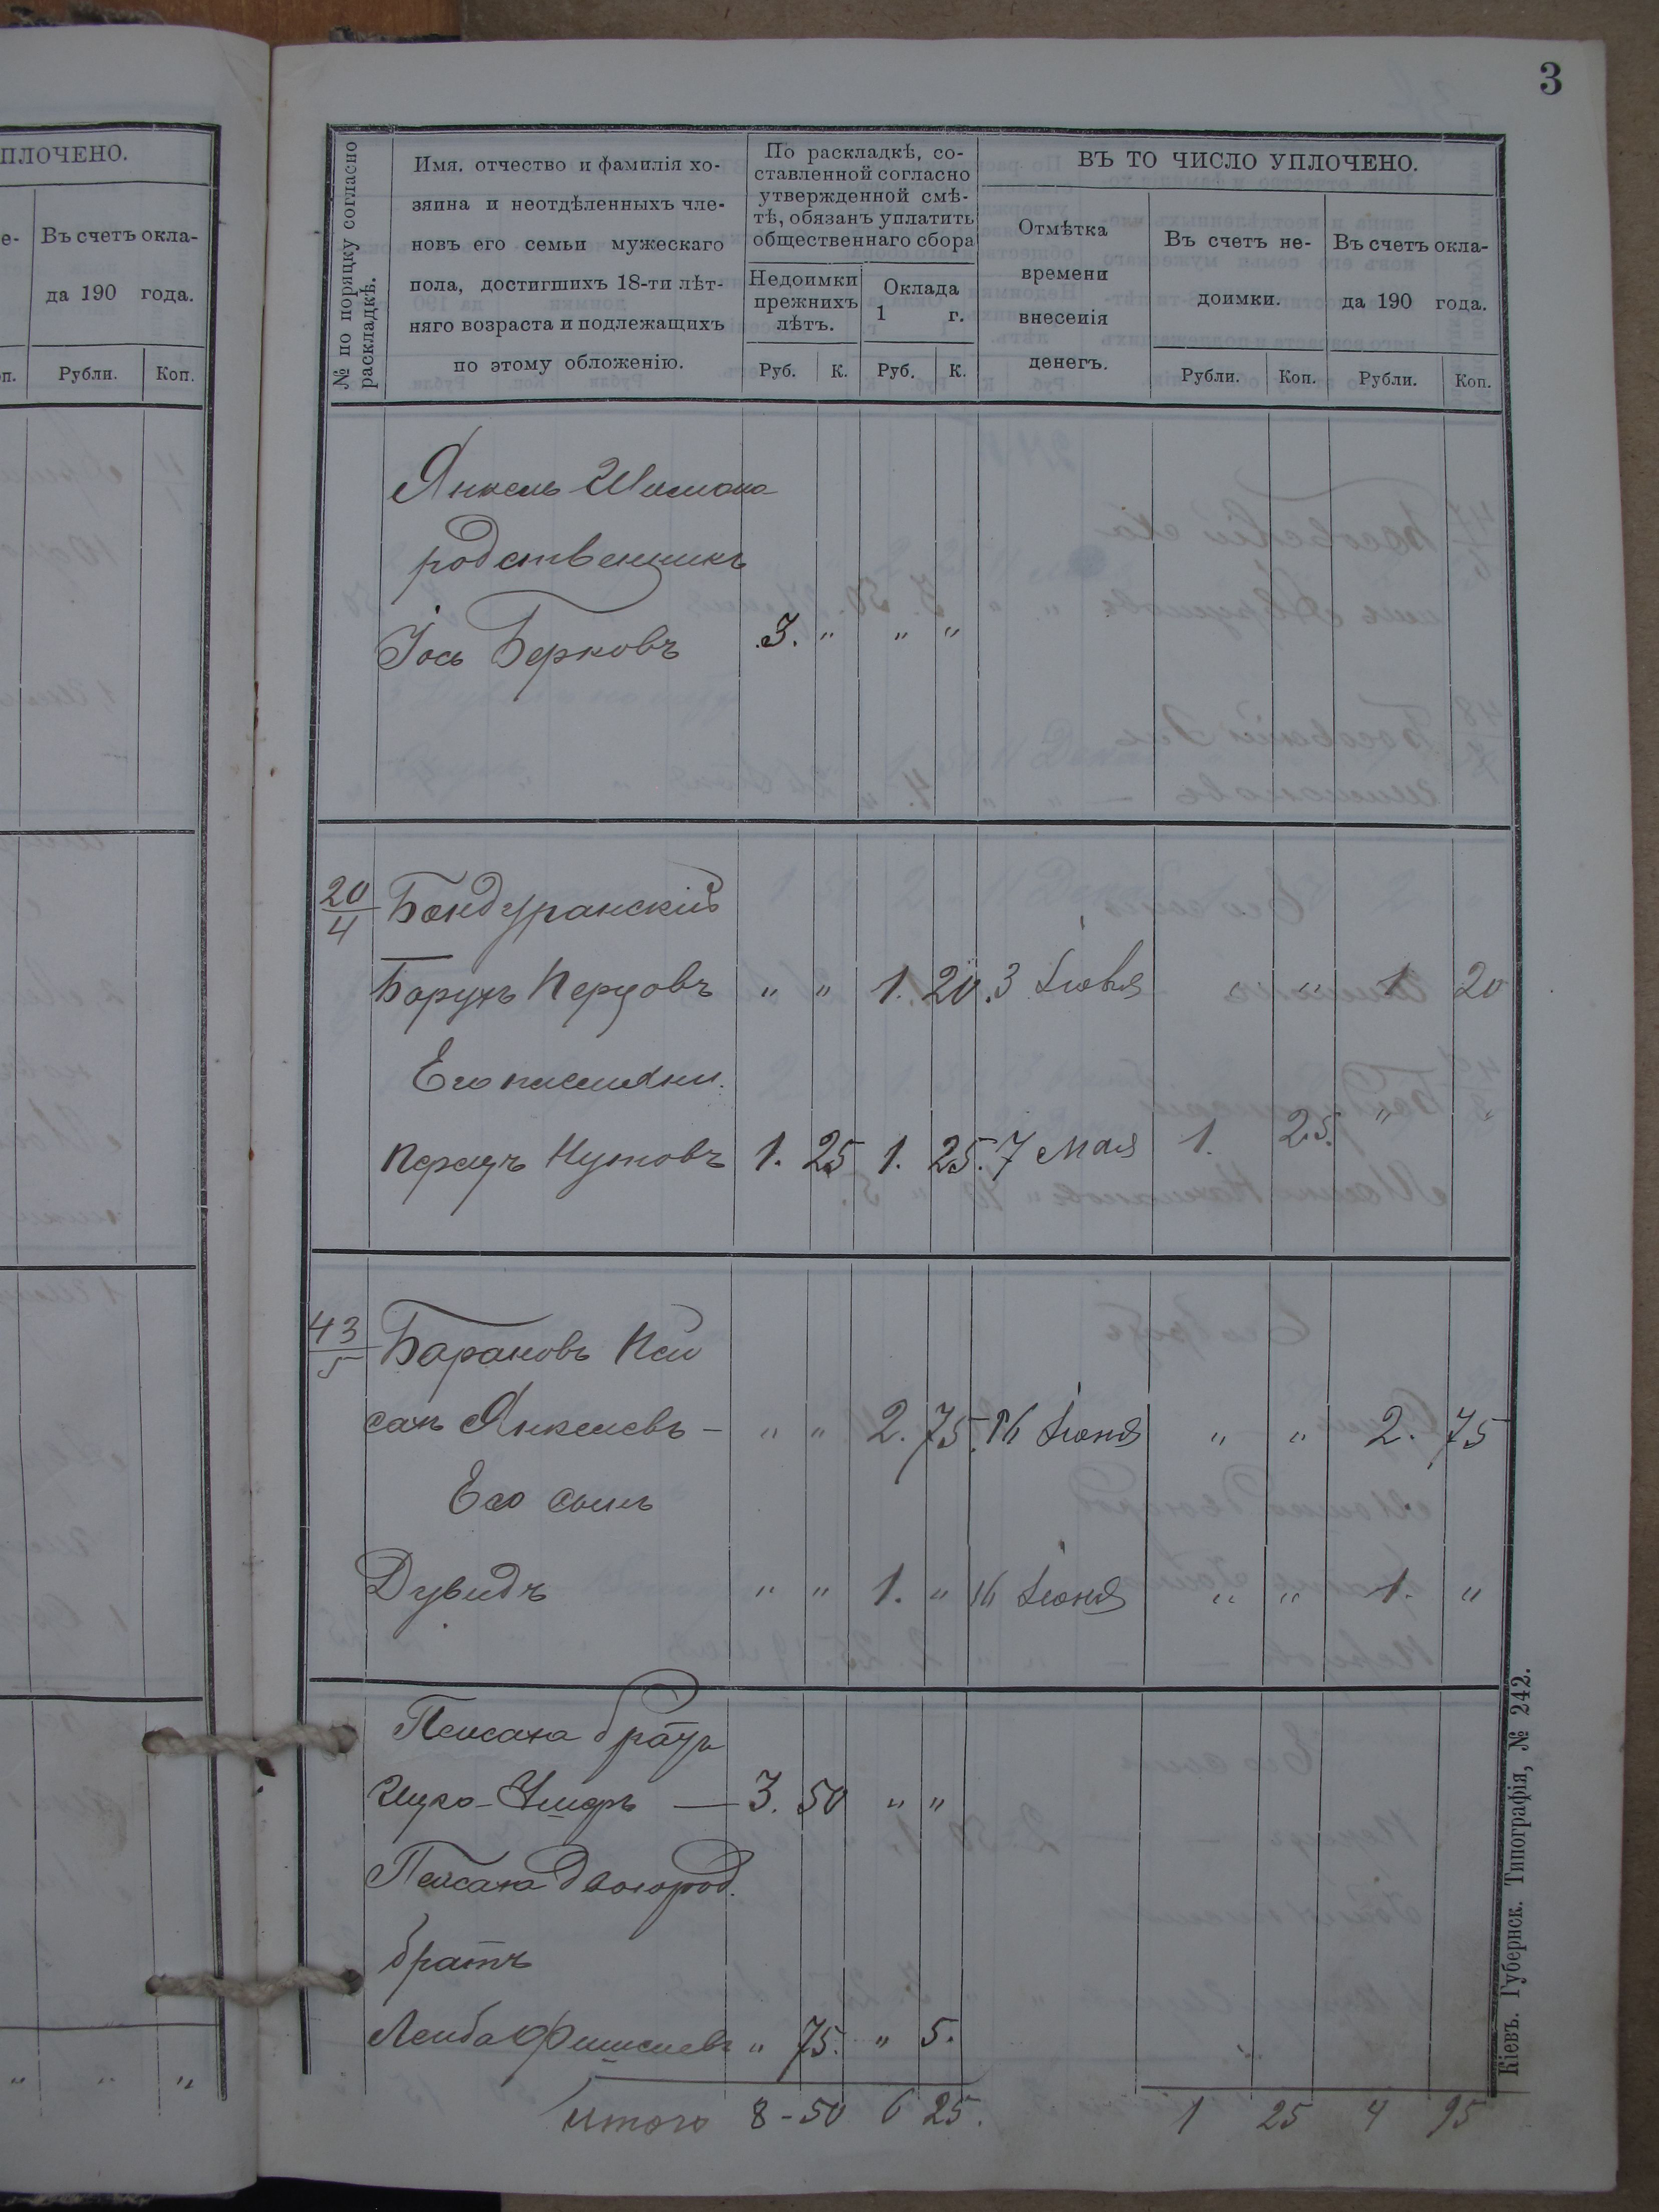 3
ПЛОЧЕНО.
е-
Въ счетъ окла-
да 190 года.
п.
Рубли.
Коп.
№ по порядку согласно
раскладкѣ.
Имя, отчество и фамилія хо-
зяина и неотдѣленныхъ чле-
новъ его семьи мужескаго
пола, достигшихъ 18-ти лѣт-
няго возраста и подлежащихъ
по этому обложенію.
По раскладкѣ, со-
ставленной согласно
утвержденной смѣ-
тѣ, обязанъ уплатить
общественнаго сбора
Недоимки
прежнихъ
лѣтъ.
Оклада
1 г.
Руб. К. Руб. К.
ВЪ ТО ЧИСЛО УПЛОЧЕНО.
Отмѣтка
времени
внесенія
денегъ.
Въ счетъ не-
доимки.
Рубли. Коп.
Въ счетъ окла-
да 190 года.
Рубли. Коп.
Янкель
родственникъ
Іось Берковъ 3. " " "
20/4 Бондуранскій
Борухъ Перцовъ " " 1. 20. 3 Іюня " " 1 20
Его племянни.
Перецъ Нутовъ 1. 25 1. 25. 7 Мая 1. 25. " "
43/5 Барановъ Пей
сахъ Янкелевъ – " " 2. 75. 16 Іюня " " 2. 75
Его сынъ
Дувидъ " " 1. " 16 Іюня " " 1. "
Пейсаха братъ
Ицко- — 3. 50 " "
Пейсаха двоюрод.
братъ
Лейба Фишелевъ " 75. " 5.
Итого 8-50 6 25. 1 25 4 95
" " "
Кіевъ. Губернск. Типографія, № 242.